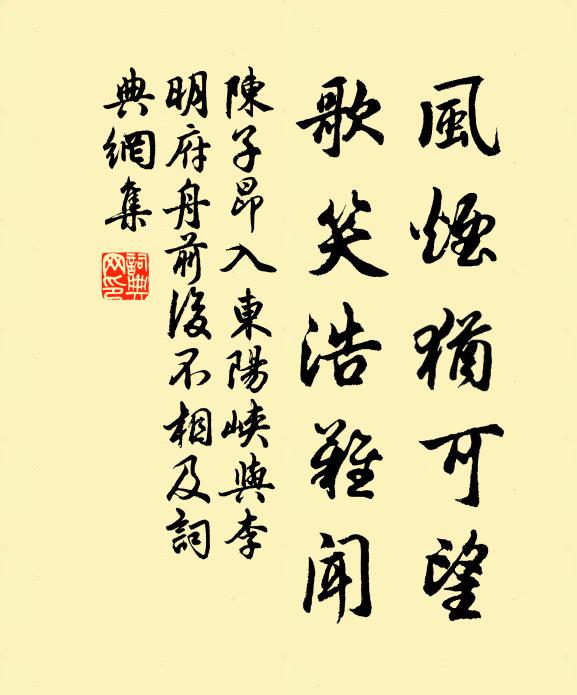 風煙猶可望
歌笑浩難聞
陳子昂入東陽峽與李
明府舟前後不相及詞
典網集
詞典
网印